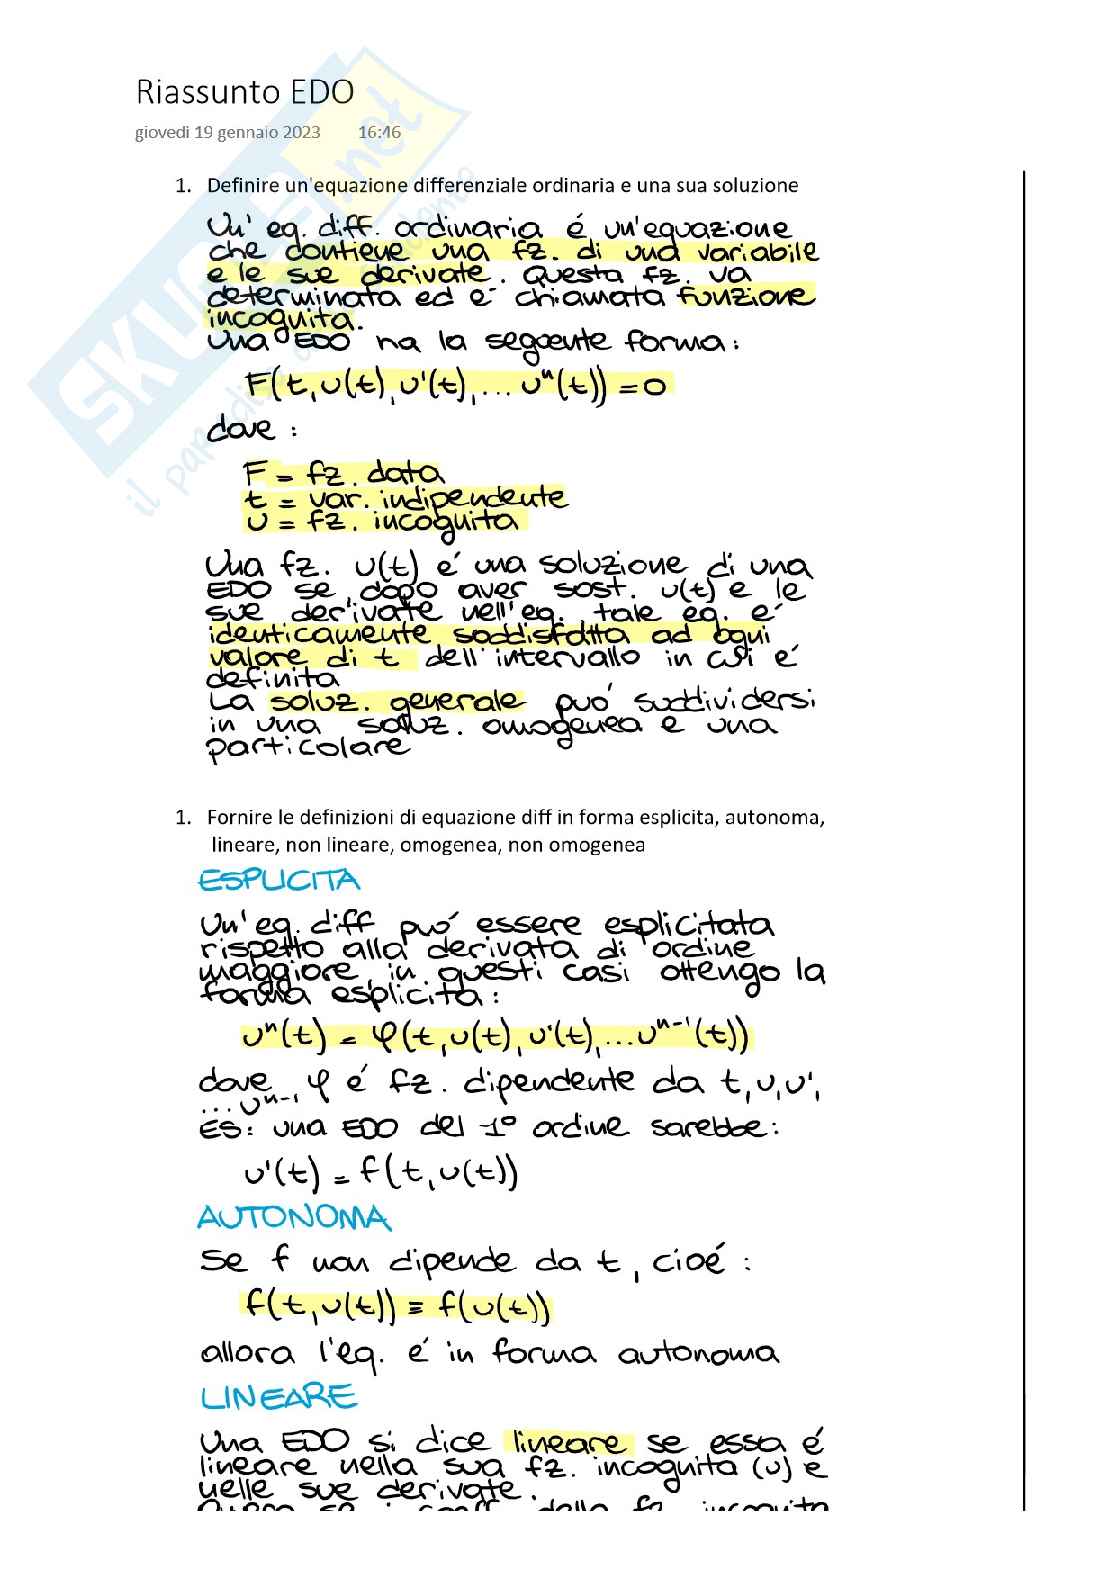 SKUOLA.net
il paradiso dello studente
Riassunto EDO
giovedì 19 gennaio 2023 16:46
1. Definire un'equazione differenziale ordinaria e una sua soluzione
Un' eq. diff. ordinaria é un'equazione
che contiene una fz. di una variabile
e le sue derivate. Questa fz. va
determinata ed é chiamata funzione
incognita.
Una EDO ha la seguente forma:
F(t, u(t), u'(t), ... uⁿ(t)) = 0
dove :
F = fz. data
t = var. indipendente
u = fz. incognita
Una fz. u(t) é una soluzione di una
EDO se, dopo aver sost. u(t) e le
sue derivate nell'eq. tale eq. é
identicamente soddisfatta ad ogni
valore di t dell'intervallo in cui é
definita
La soluz. generale puó suddividersi
in una soluz. omogenea e una
particolare
1. Fornire le definizioni di equazione diff in forma esplicita, autonoma,
lineare, non lineare, omogenea, non omogenea
ESPLICITA
Un'eq. diff puó essere esplicitata
rispetto alla derivata di ordine
maggiore, in questi casi ottengo la
forma esplicita:
uⁿ(t) = φ(t, u(t), u'(t), ... uⁿ⁻¹(t))
dove φ é fz. dipendente da t, u, u',
... uⁿ⁻¹
ES: una EDO del 1° ordine sarebbe:
u'(t) = f(t, u(t))
AUTONOMA
Se f non dipende da t, cioé :
f(t, u(t)) ≡ f(u(t))
allora l'eq. é in forma autonoma
LINEARE
Una EDO si dice lineare se essa é
lineare nella sua fz. incognita (u) e
nelle sue derivate.